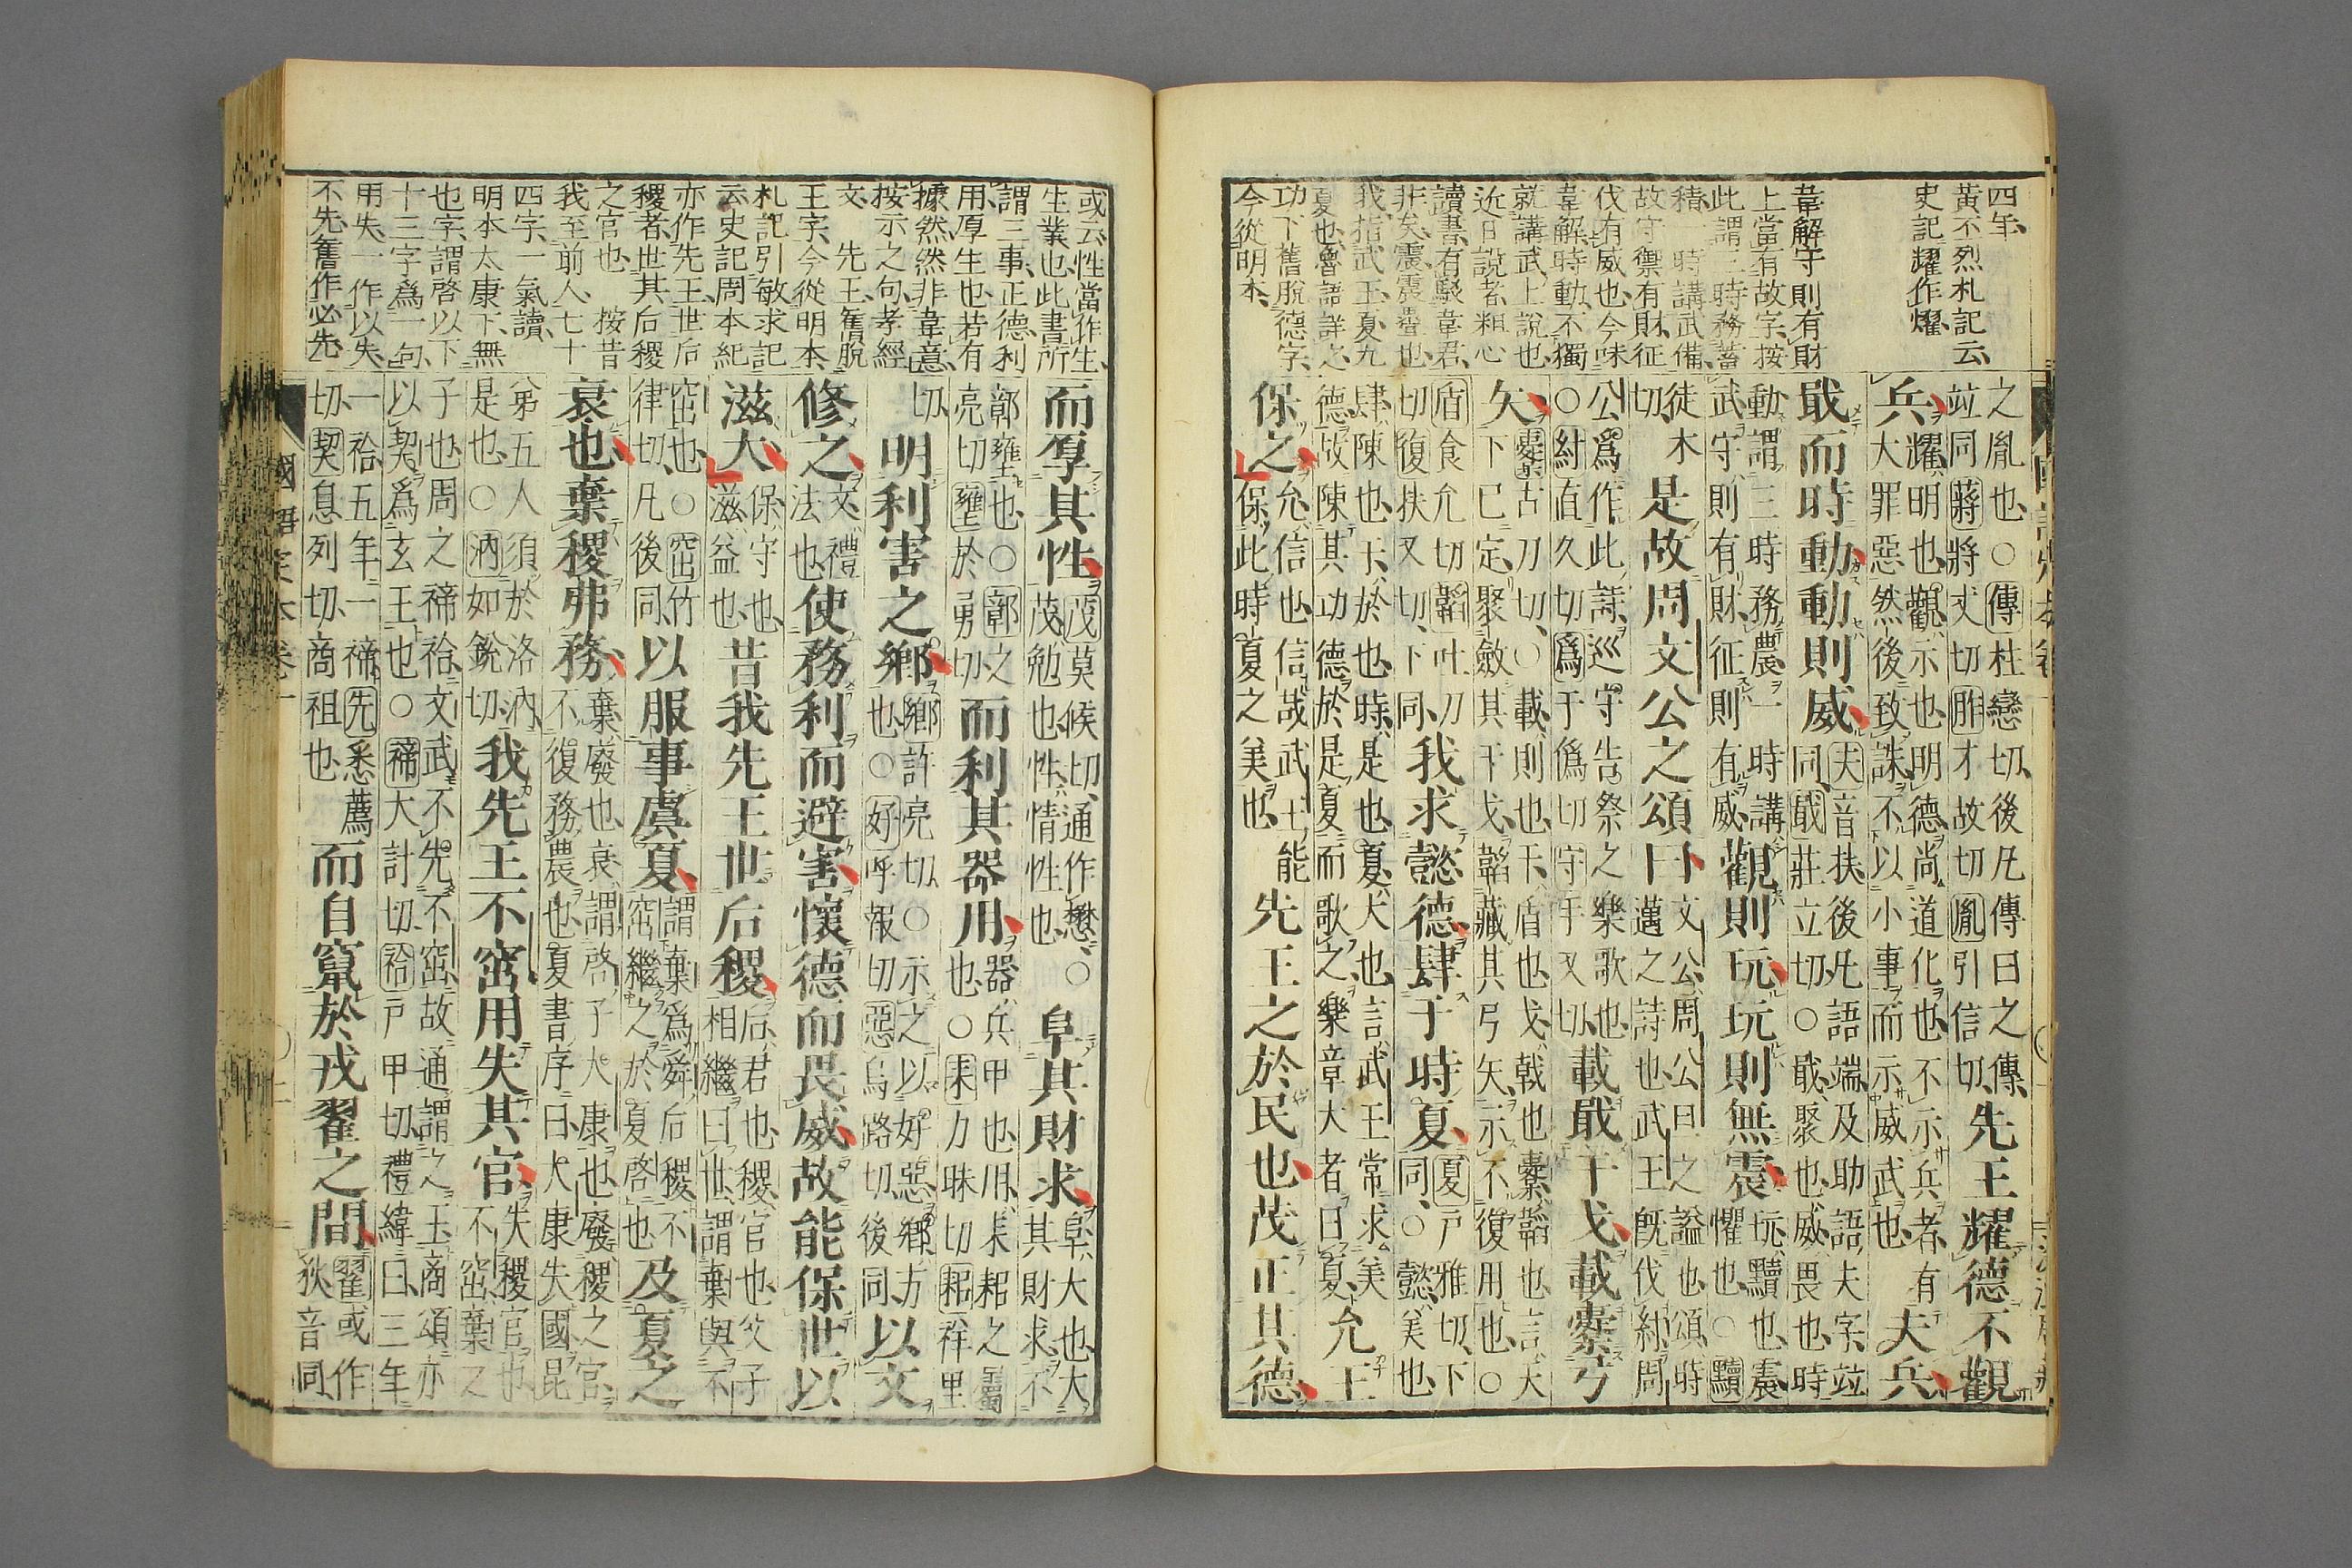 四年、
黃丕烈札記云、
史記耀作燿、
韋解守則有財
上當有故字、按
此謂三時務蓄
積一時講武備、
故守禦有財征
伐有威也、今味
韋解時動、不獨
就講武上說也、
近日說者粗心
讀書、有駁韋君、
非矣、震震讋也、
我、指武王、夏九
夏也、魯語詳之、
功下舊脫德字、
今從明本、
之胤也、○傳柱戀切、後凡傳曰之傳、
竝同蔣將丈切胙才故切胤引信切、
先王耀德不觀
兵
耀、明也、觀、示也、明德、尚道化也、不示兵者、有
大罪惡然後致誅、不以小事而示威武也、
夫兵
戢而時動動則威
夫音扶後凡語端及助語夫字、竝
同、戢莊立切、○戢、聚也、威、畏也、時
動、謂三時務農一時講
武、守則有財、征則有威、
觀則玩玩則無震
玩、黷也、震、
懼也、○黷
徒木
切
是故周文公之頌曰
文公、周公旦之謚也、頌、時
邁之詩也、武王既伐紂、周
公爲作此詩、巡守告祭之樂歌也、
○紂直久切爲于僞切守手又切、
載戢干戈載櫜弓
矢
櫜古刀切、○載、則也、干、盾也、戈、戟也、櫜、韜也、言天
下已定、聚斂其干戈、韜藏其弓矢、示不復用也、○
盾食允切韜吐刀
切復扶又切、下同、
我求懿德肆于時夏
夏戶雅切、下
同、○懿、美也、
肆、陳也、于、於也、時、是也、夏、大也、言武王常求美
德、故陳其功德於是夏而歌之、樂章大者曰夏、
允王
保之
允、信也、信哉武王能
保此時夏之美也、
先王之於民也茂正其德
或云、性當作生、
生業也、此書所
謂三事、正德利
用厚生也、若有
據然、然非韋意、
按示之句、孝經
文、　先王、舊脫
王字、今從明本、
札記引敏求記
云、史記周本紀
亦作先王、世后
稷者、世其后稷
之官也　按昔
我至前人、七十
四字、一氣讀、
明本太康下、無
也字、謂啓以下
十三字爲一句、
用失、一作以失、
不先舊作必先、
而厚其性
茂莫候切、通作懋、○
茂、勉也、性、情性也、
阜其財求
阜、大也、大
其財求、不
鄣壅也、○鄣之
亮切壅於勇切
而利其器用
器、兵甲也、用、耒耜之屬
也、○耒力昧切耜祥里
切、
明利害之鄉
鄉許亮切、○示之以好惡、鄉、方
也、○好呼報切惡烏路切、後同
以文
修之
文、禮
法也、
使務利而避害懷德而畏威故能保世以
滋大
保、守也、
滋、益也、
昔我先王世后稷
后、君也、稷、官也、父子
相繼曰世、謂棄與不
窋也、○窋竹
律切、凡後同、
以服事虞夏
謂棄爲舜后稷、不
窋繼之於夏啓也、
及夏之
衰也棄稷弗務
棄、廢也、衰、謂啓子太康也、廢稷之官、
不復務農也、夏書序曰、太康失國昆
弟五人須於洛汭、
是也、○汭如銳切、
我先王不窋用失其官
失稷官也、
不窋、棄之
子也、周之禘祫、文武不先不窋、故通謂之王、商頌亦
以契爲玄王也、○禘大計切祫戶甲切、禮緯曰、三年
一祫五年一禘、先悉薦
切、契息列切、商祖也、
而自竄於戎翟之間
翟或作
狄、音同、
國語定本卷一